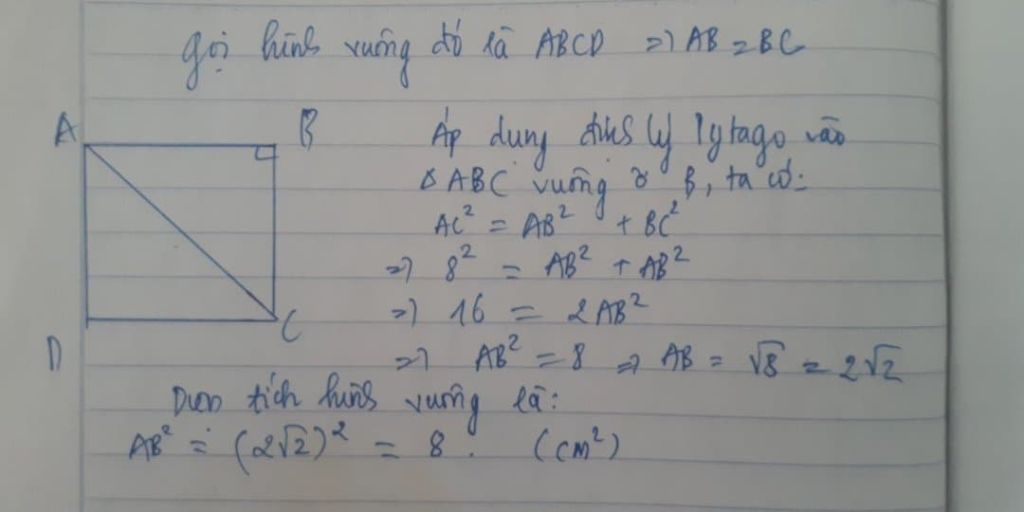 Gọi hình vuông đó là ABCD => AB = BC
A B
Áp dụng định lý Pytago vào
Δ ABC vuông ở B, ta có:
AC² = AB² + BC²
=> 8² = AB² + AB²
=> 16 = 2AB²
D C
=> AB² = 8 => AB = √8 = 2√2
Diện tích hình vuông là:
AB² = (2√2)² = 8. (cm²)